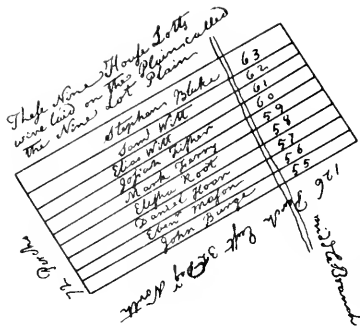 These Nine House Lotts
were laid on the Plain called
the Nine Lot Plain
Stephen Blake 63
Saml Witt 62
Elias Witt 61
Josiah Fisher 60
Mark Ferry 59
Elisha Root 58
Daniel Hoar 57
Eben Mason 56
John Bunge 55
72 Perche
126 Perch
East 3 Deg North
middle Branch